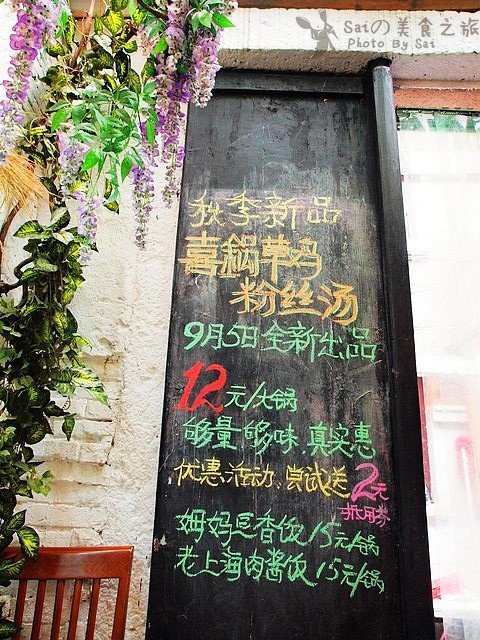 Saiの美食之旅
Photo By Sai
秋季新品
喜锅草鸡
粉丝汤
9月5日全新出品
12元/大锅
够量够味.真实惠
优惠活动、尝试送2元
抵用券
姆妈豆香饭15元/锅
老上海肉酱饭15元/锅